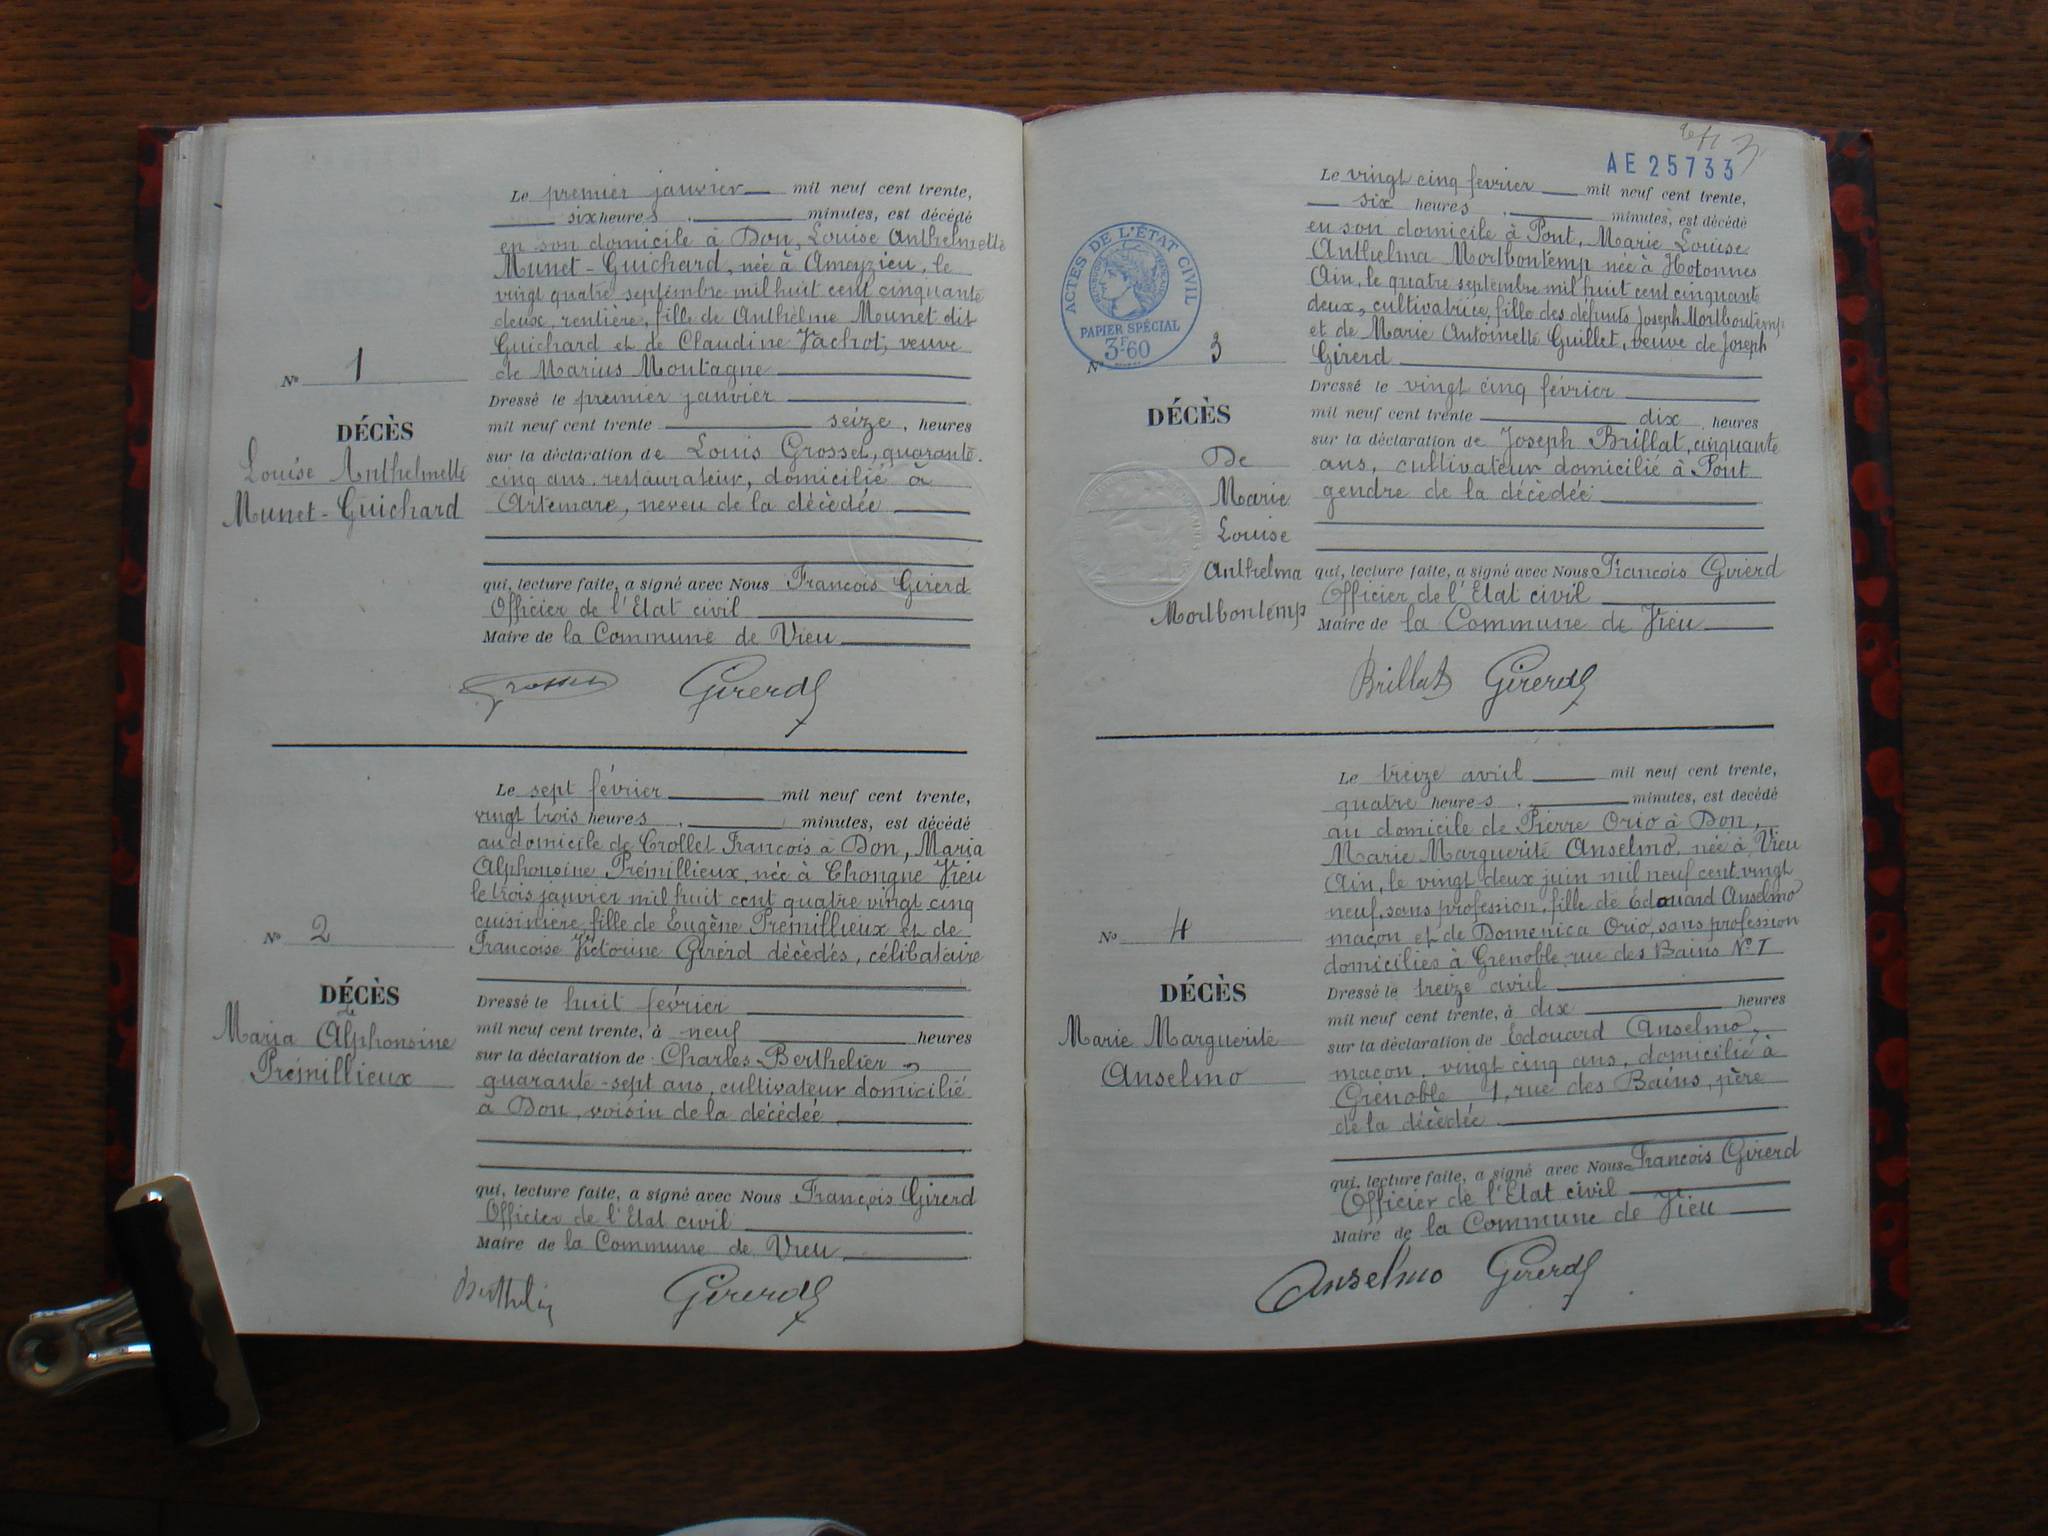 Le premier janvier mil neuf cent trente,
six heures minutes, est décédé
en son domicile à Don, Louise Anthelmette
Munet-Guichard, née à Ameyzieu, le
vingt quatre septembre mil huit cent cinquante
deux, rentière, fille de Anthelme Meunet dit
Guichard et de Claudine Vachot, veuve
de Marius Montagne
Nº 1
DÉCÈS
Louise Anthelmette
Munet-Guichard
Dressé le premier janvier
mil neuf cent trente seize, heures
sur la déclaration de Louis Grosset, quarante-
cinq ans, restaurateur, domicilié à
Artemare, neveu de la décèdée
qui, lecture faite, a signé avec Nous François Girerd
Officier de l'Etat civil
Maire de la Commune de Vieu
Girerd
Le sept février mil neuf cent trente,
vingt trois heures minutes, est décédé
au domicile de Crollet François à Don, Maria
Alphonsine Prémillieux, née à Chongne Vieu
le trois janvier mil huit cent quatre vingt cinq
cuisinière, fille de Eugène Prémillieux et de
Francoise Victorine Girerd décèdés, célibataire
Nº 2
DÉCÈS
de
Maria Alphonsine
Prémillieux
Dressé le huit février
mil neuf cent trente, à neuf heures
sur la déclaration de Charles Berthelier
quarante-sept ans, cultivateur domicilié
à Don, voisin de la décédée
qui, lecture faite, a signé avec Nous François Girerd
Officier de l'Etat civil
Maire de la Commune de Vieu
Girerd
AE 25733
ACTES DE L'ÉTAT CIVIL
PAPIER SPÉCIAL
3F60
Le vingt cinq février mil neuf cent trente,
six heures minutes, est décédé
en son domicile à Pont, Marie Louise
Anthelma Morlbontemp née à Hotonnes
Ain, le quatre septembre mil huit cent cinquante
deux, cultivatrice, fille des défunts Joseph Morlbontemp
et de Marie Antoinette Guillet, veuve de Joseph
Girerd
Nº 3
DÉCÈS
De
Marie
Louise
Anthelma
Morlbontemp
Dressé le vingt cinq février
mil neuf cent trente dix heures
sur la déclaration de Joseph Brillat, cinquante
ans, cultivateur domicilié à Pont
gendre de la décèdée
qui, lecture faite, a signé avec Nous François Girerd
Officier de l'Etat civil
Maire de la Commune de Vieu
Brillat Girerd
Le treize avril mil neuf cent trente,
quatre heures minutes, est decédé
au domicile de Pierre Orio à Don,
Marie Marguerite Anselmo, née à Vieu
Ain, le vingt deux juin mil neuf cent vingt
neuf, sans profession, fille de Edouard Anselmo
maçon et de Domenica Orio, sans profession
domiciliés à Grenoble, rue des Bains Nº 1
Nº 4
DÉCÈS
Marie Marguerite
Anselmo
Dressé le treize avril
mil neuf cent trente, à dix heures
sur la déclaration de Edouard Anselmo,
maçon, vingt cinq ans, domicilié à
Grenoble 1, rue des Bains, père
de la décèdée
qui, lecture faite, a signé avec Nous François Girerd
Officier de l'Etat civil
Maire de la Commune de Vieu
Anselmo Girerd